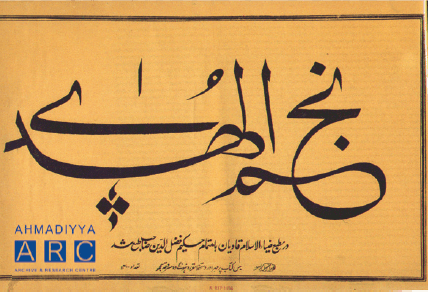 نجم الہدیٰ
در مطبع ضیاء الاسلام قادیان باہتمام حکیم فضل الدین صاحب طبع شد
AHMADIYYA
ARC
ARCHIVE & RESEARCH CENTRE